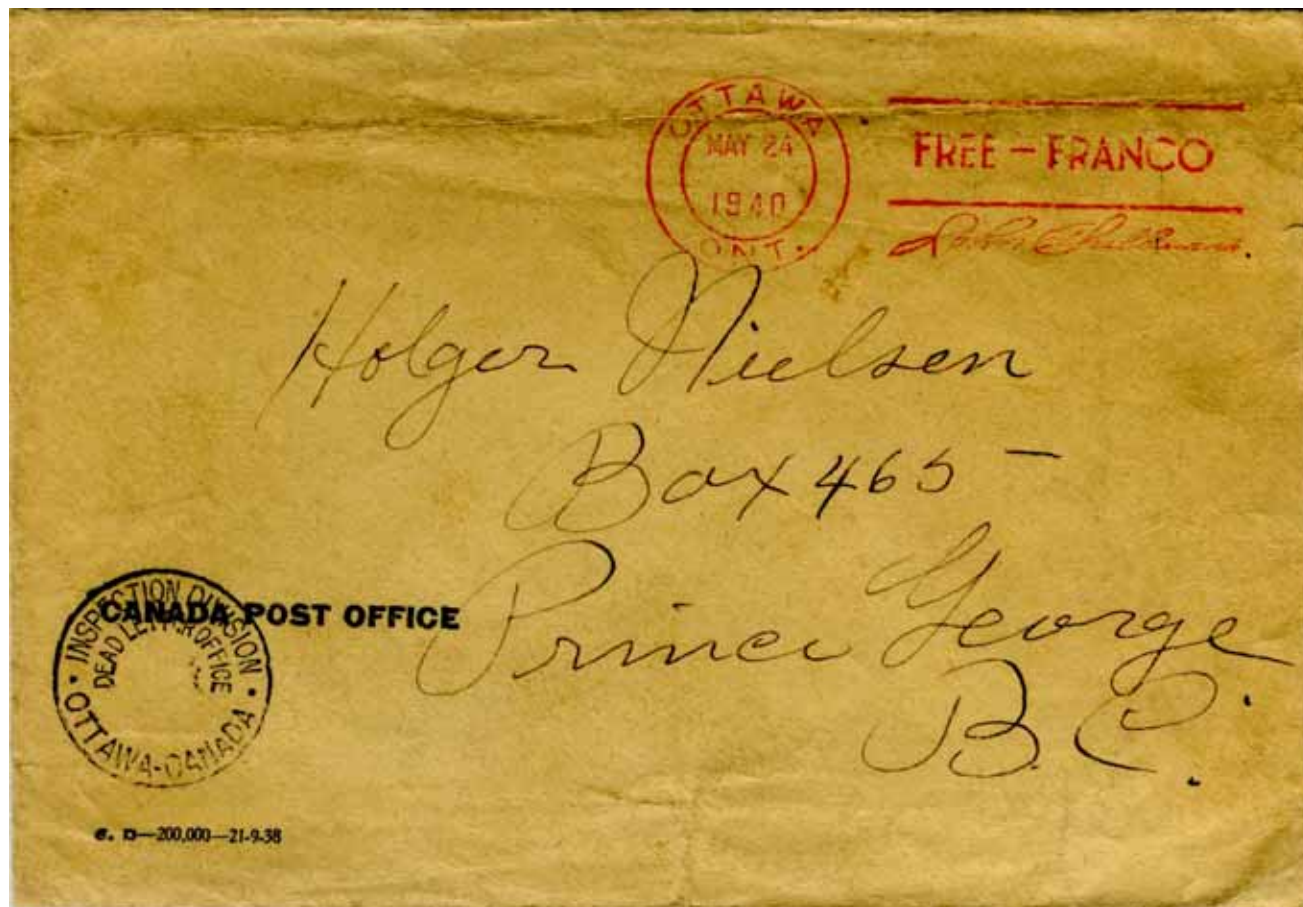 OTTAWA
MAY 24
1940
ONT.
FREE – FRANCO
Holger Nielsen
Box 465 –
Prince George
B.C.
CANADA POST OFFICE
• INSPECTION DIVISION •
DEAD LETTER OFFICE
OTTAWA-CANADA
—200,000—21-9-38